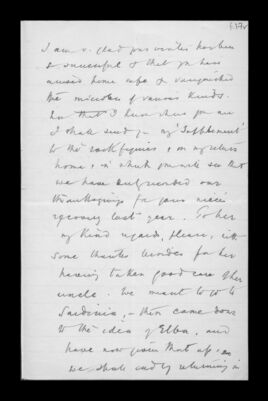 I am v. glad yr winter has been
so successful & that you have
arrived home safe & vanquished
the microbes of various kinds.
that I know where you are
I shall send you my 'Supplement'
to the rock figures, on my return
home, & in which you will see that
we have duly recorded our
thanksgiving for your niece's
recovery last year. To her
my kind regards, please, with
some thanks besides for her
having taken good care of her
uncle. We meant to go to
Sardinia, then came down
to the idea of Elba, and
have now given that up, as
we shall only returning in